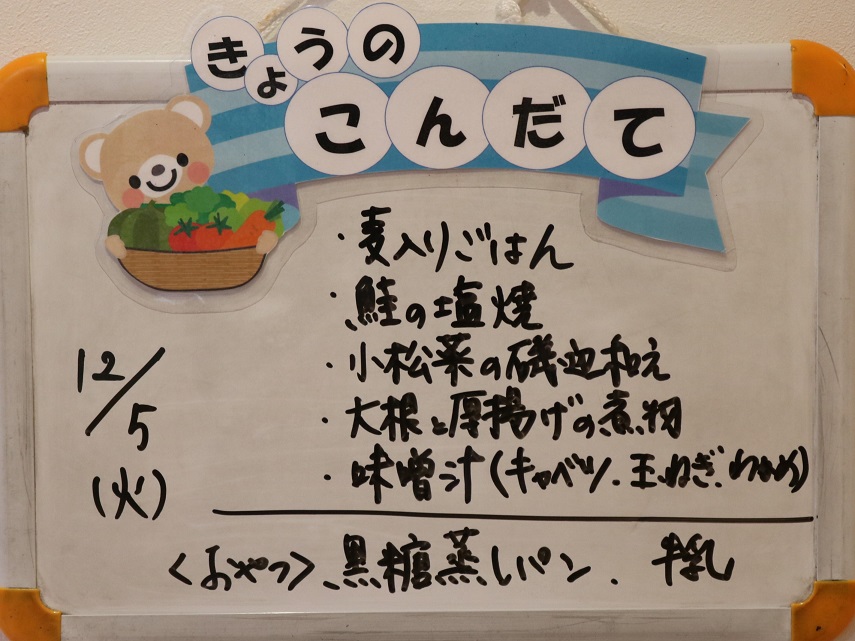 きょうの
こんだて
・麦入りごはん
・鮭の塩焼
・小松菜の磯辺和え
・大根と厚揚げの煮物
・味噌汁(キャベツ.玉ねぎ.わかめ)
12/5
(火)
<おやつ>.黒糖蒸しパン.牛乳